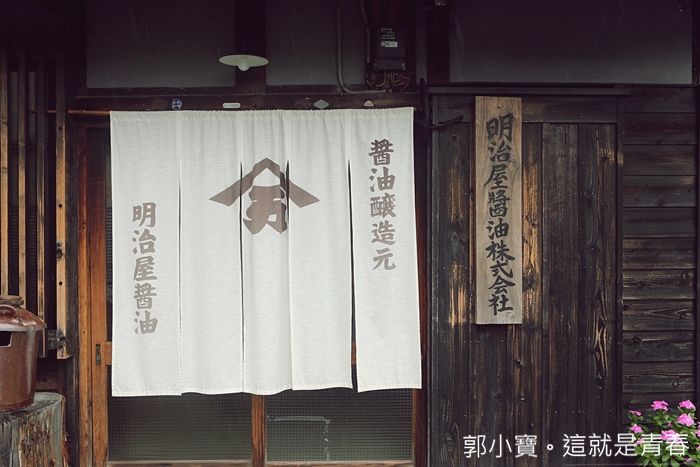 明治屋醬油株式会社
醤油醸造元
明治屋醤油
郭小寶。這就是青春